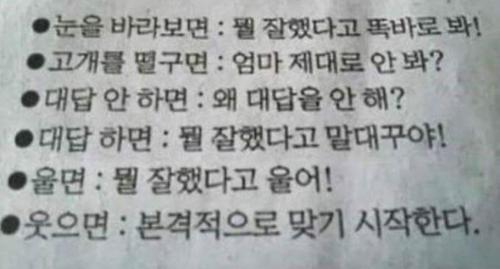 ●눈을 바라보면 : 뭘 잘했다고 똑바로 봐!
●고개를 떨구면 : 엄마 제대로 안 봐?
●대답 안 하면 : 왜 대답을 안 해?
●대답 하면 : 뭘 잘했다고 말대꾸야!
●울면 : 뭘 잘했다고 울어!
●웃으면 : 본격적으로 맞기 시작한다.